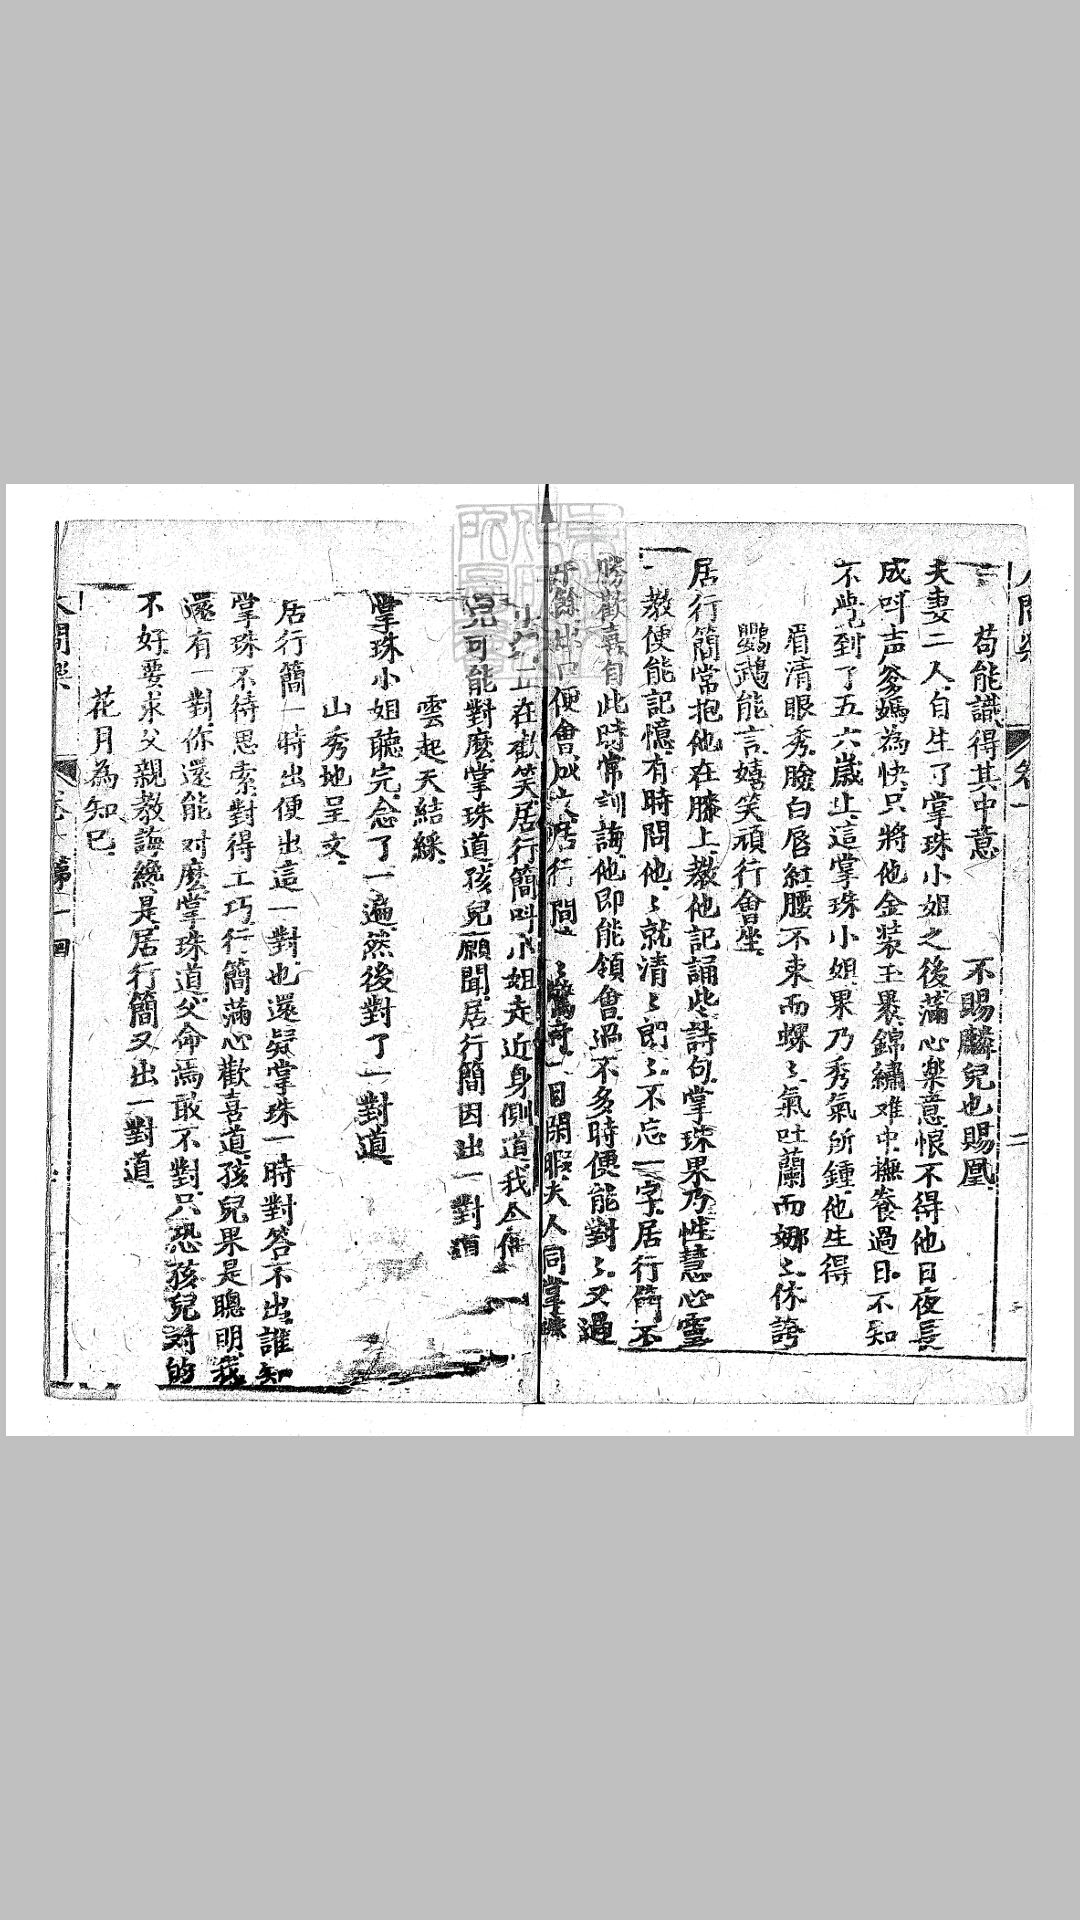 人間樂 卷一 二
苟能識得其中意 不賜麟兒也賜凰
夫妻二人自生了掌珠小姐之後滿心樂意恨不得他日夜長
成叫声爹媽為快只將他金裝玉裹錦繡难中撫養過日不知
不覺到了五六歲止這掌珠小姐果乃秀氣所鍾他生得
眉清眼秀臉白唇紅腰不束而螺〻氣吐蘭而娜〻休誇
鸚鵡能言嬉笑頑行會坐
居行簡常抱他在膝上教他記誦此詩句掌珠果乃性慧心靈
一教便能記憶有時問他〻就清〻朗〻不忘一字居行簡不
勝歡喜自此時常訓誨他即能領會過不多時便能對〻又過
年餘出口便會成文居行簡 〻驚奇一日閑暇夫人同掌珠
在歡笑居行簡叫小姐走近身側道我今有
兒可能對麽掌珠道孩兒願聞居行簡因出一對道
雲起天結綵
掌珠小姐聽完念了一遍然後對了一對道
山秀地呈文
居行簡一時出便出這一對也還疑掌珠一時對答不出誰知
掌珠不待思索對得工巧行簡滿心歡喜道孩兒果是聰明我
還有一對你還能对麽掌珠道父命焉敢不對只恐孩兒对的
不好要求父親教誨纔是居行簡又出一對道
花月為知己
人間樂 卷一 第一回